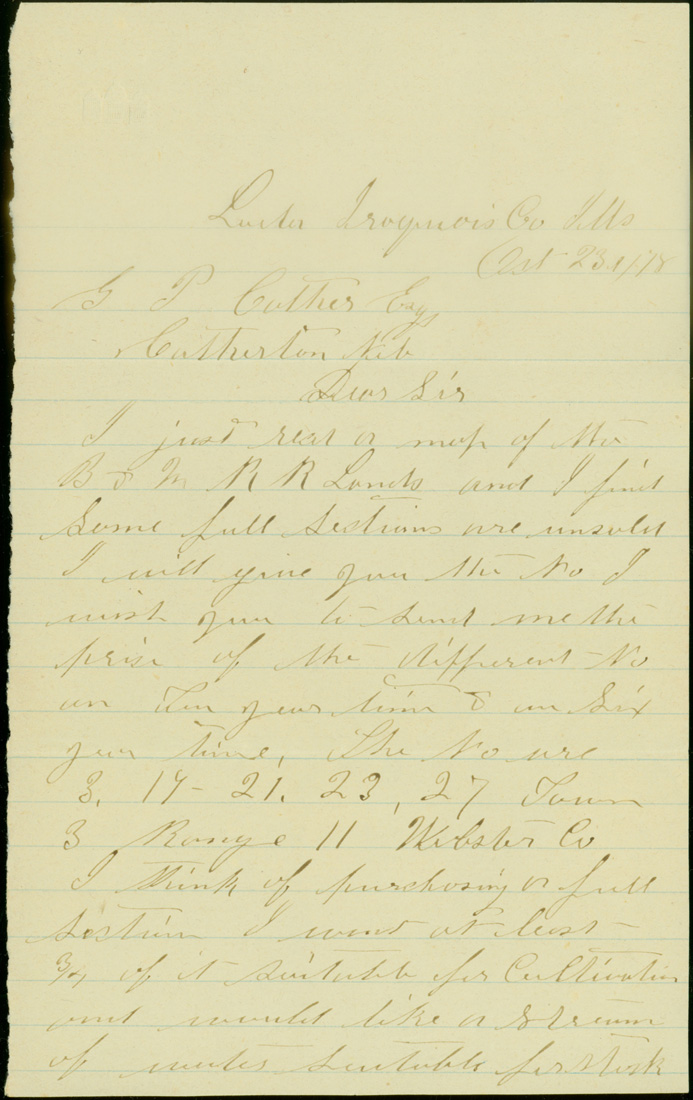 Iroquois Co Ills
Oct 23d/78
G P Cather Esq
Catherton Neb
Dear Sir
I just recd a map of the
B & M R R Lands and I find
some full sections are unsold
I will give you the No I
wish you to send me the
prise of the different No
on Ten year time & on Six
year time, The No are
3, 17- 21. 23, 27 Town
3 Range 11 Webster Co
I think of purchasing a full
section I want at least
3/4 of it suitable for Cultivation
and would like a stream
of water suitable for stock